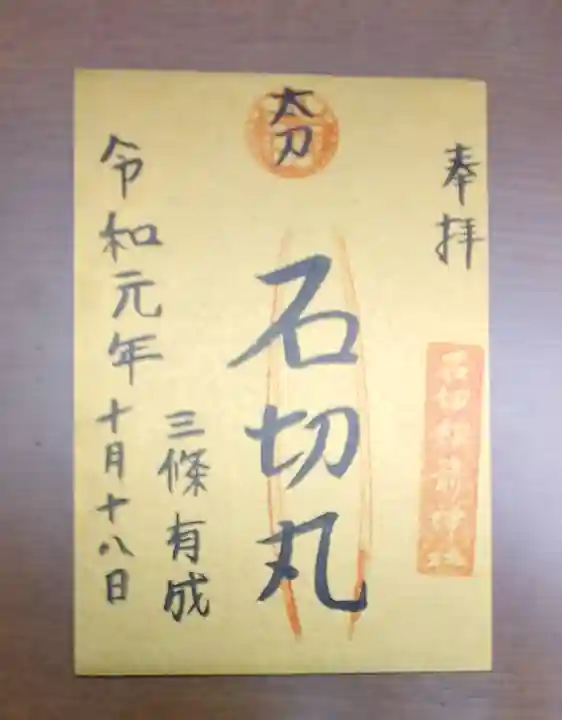 奉拝
石切劔箭神社
太刀
石切丸
三條有成
令和元年十月十八日